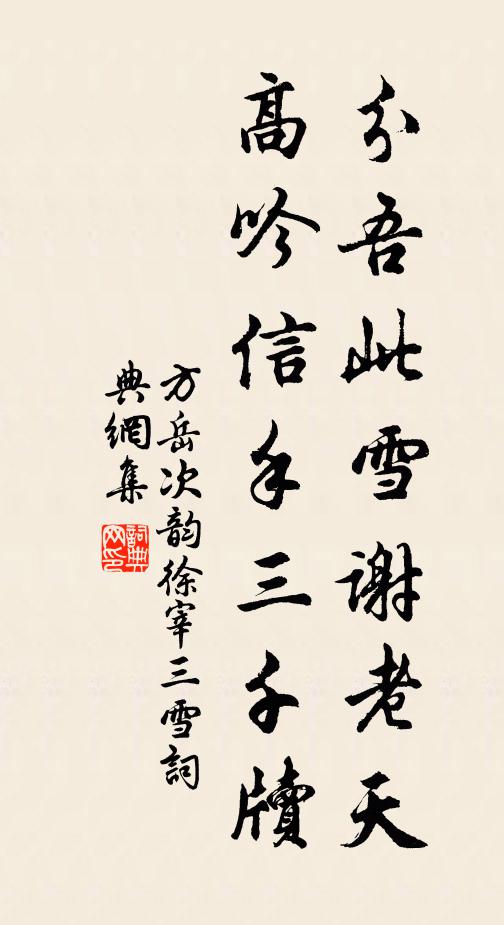 分吾此雪謝老天
高吟信手三千牘
方岳次韵徐宰三雪詞
典網集
詞典網印